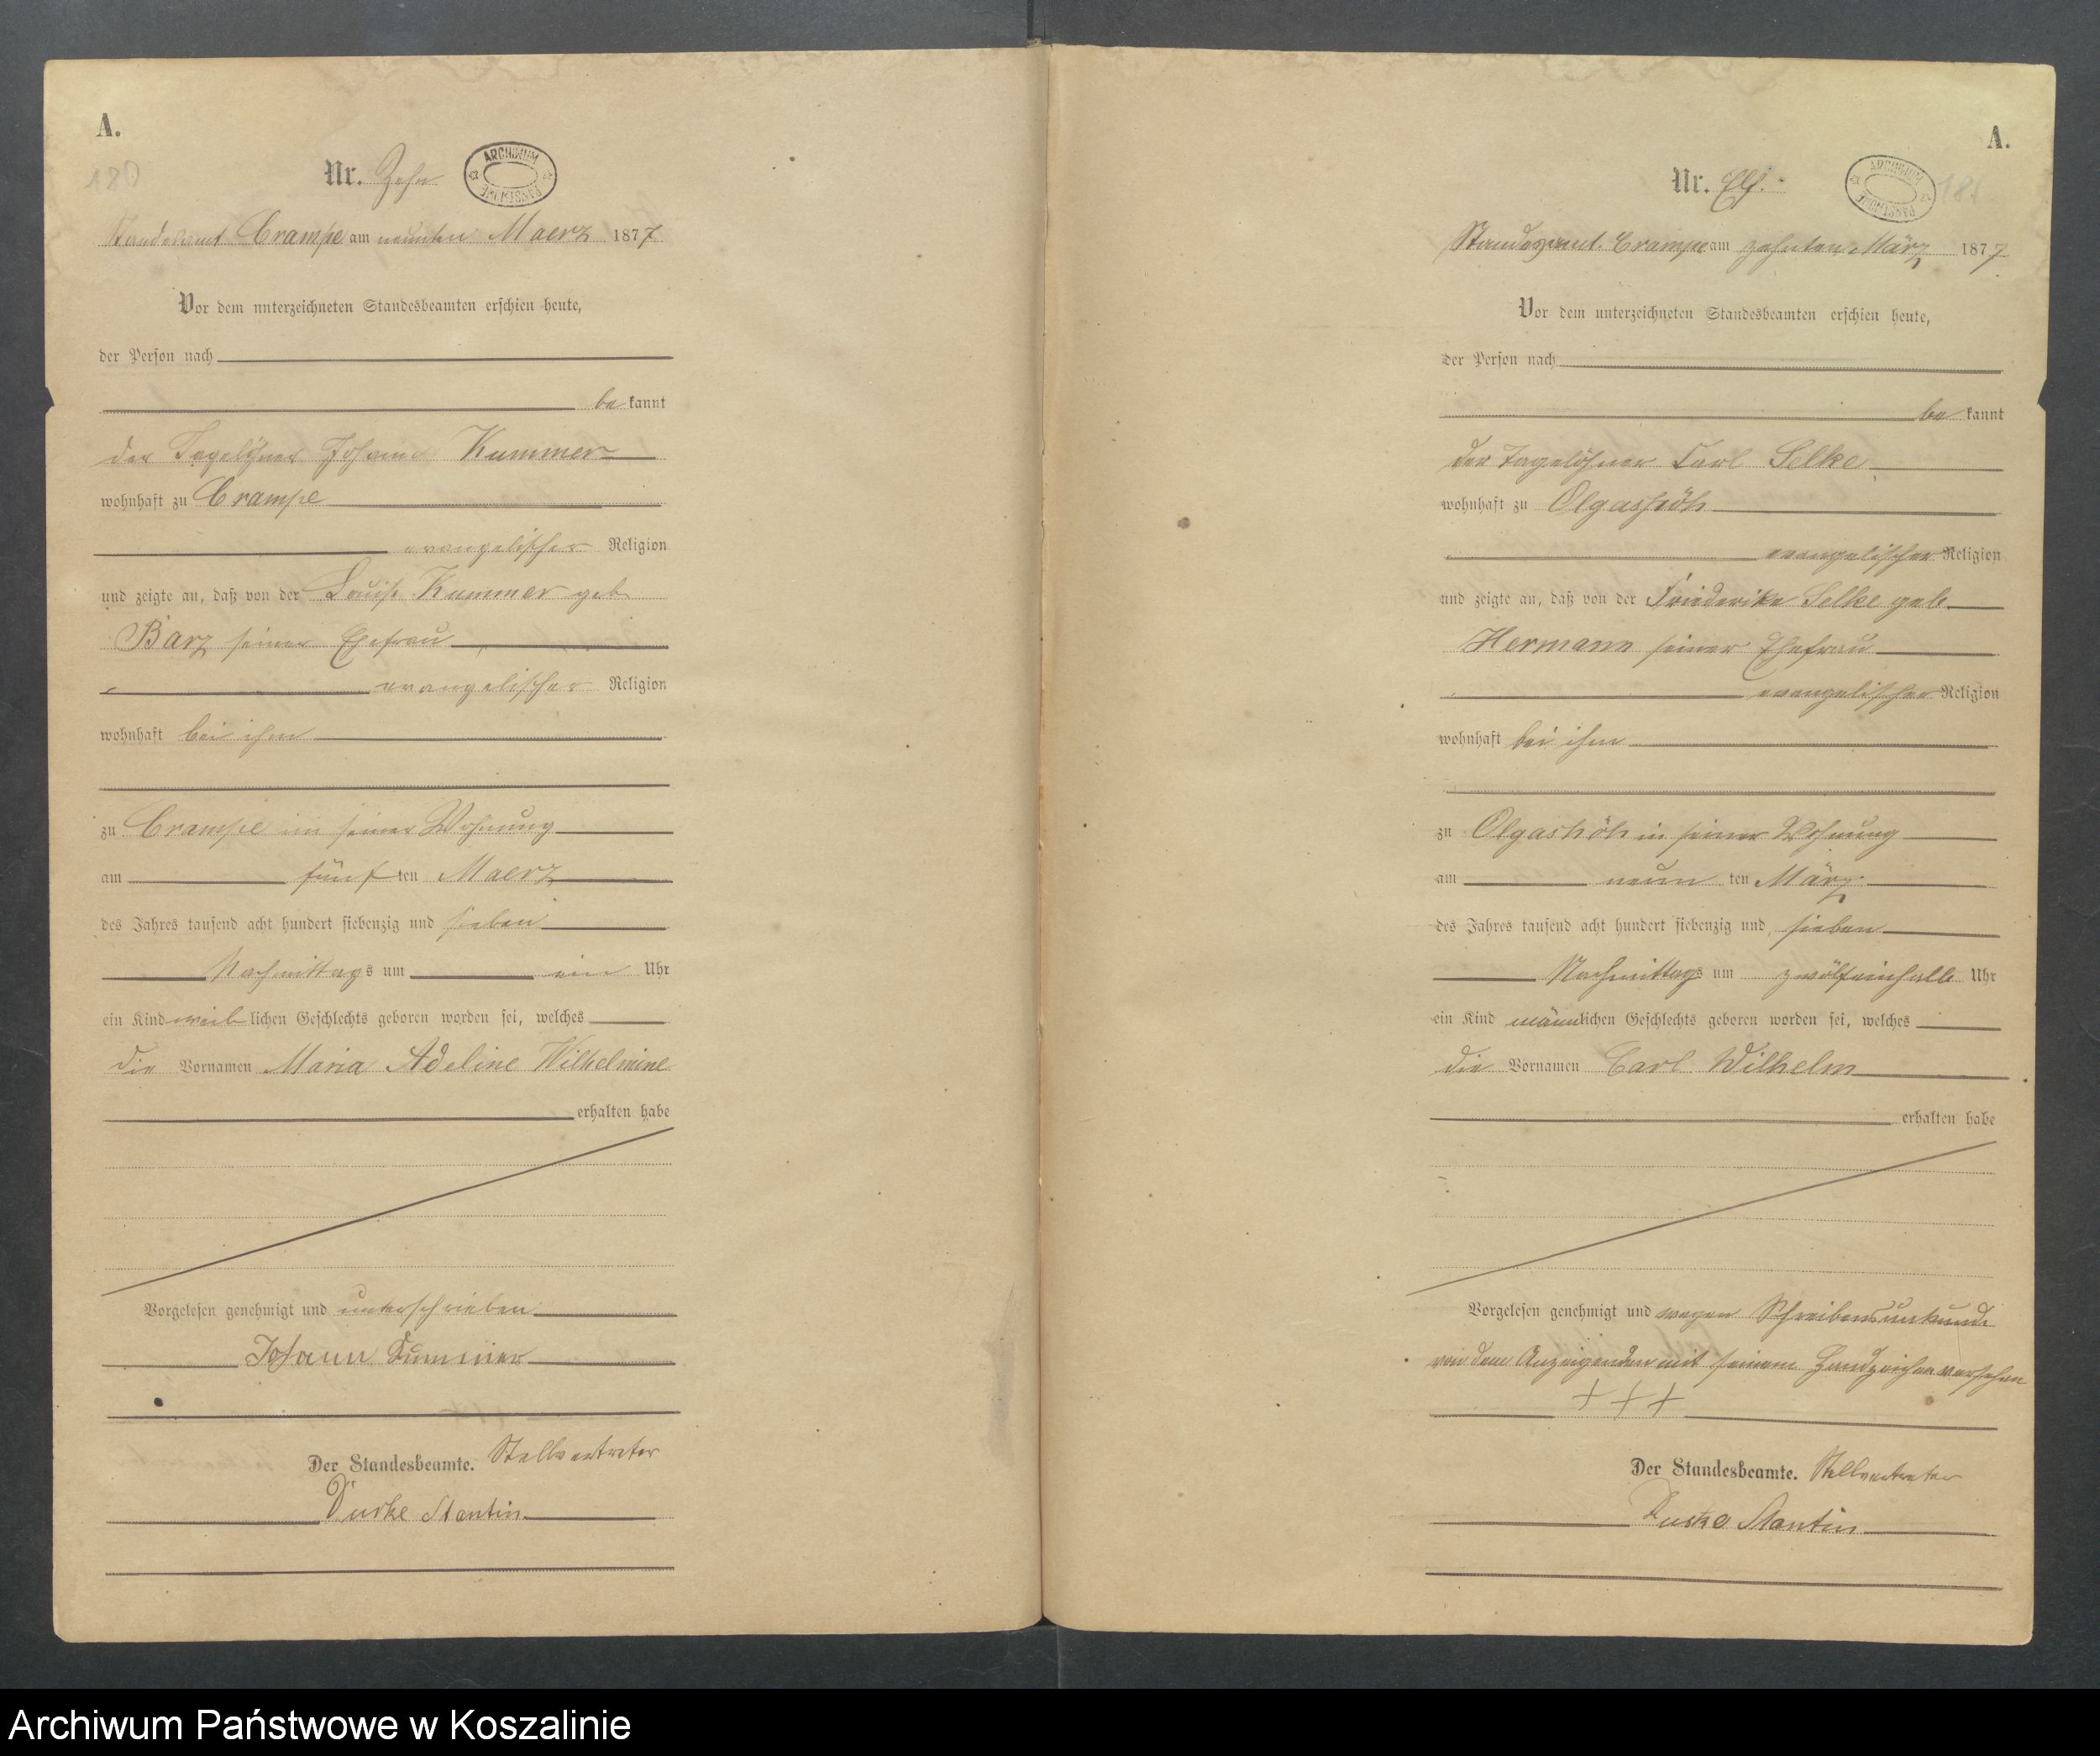 A.
180
Nr. Zehn
ARCHIWUM PAŃSTWOWE
Standesamt Crampe am neunten Maerz 1877
Vor dem unterzeichneten Standesbeamten erschien heute,
der Person nach
bekannt
der Tagelöhner Johann Kummer
wohnhaft zu Crampe
evangelischer Religion
und zeigte an, daß von der Louise Kummer geb
Barz seiner Ehefrau
evangelischer Religion
wohnhaft bei ihm
zu Crampe in seiner Wohnung
am fünften Maerz
des Jahres tausend acht hundert siebenzig und sieben
Nachmittags um ein Uhr
ein Kind weiblichen Geschlechts geboren worden sei, welches
die Vornamen Maria Adeline Wilhelmine
erhalten habe
Vorgelesen genehmigt und unterschrieben
Johann Kummer
Der Standesbeamte. Stellvertreter
Stantin
A.
181
Nr. Elf.
ARCHIWUM PAŃSTWOWE
Standesamt Crampe am zehnten März 1877
Vor dem unterzeichneten Standesbeamten erschien heute,
der Person nach
bekannt
der Tagelöhner Carl Selke
wohnhaft zu Olgashöh
evangelischer Religion
und zeigte an, daß von der Friederike Selke geb
Hermann seiner Ehefrau
evangelischer Religion
wohnhaft bei ihm
zu Olgashöh in seiner Wohnung
am neunten März
des Jahres tausend acht hundert siebenzig und sieben
Nachmittags um zwölfeinhalb Uhr
ein Kind männlichen Geschlechts geboren worden sei, welches
die Vornamen Carl Wilhelm
erhalten habe
Vorgelesen genehmigt und wegen Schreibensunkunde
von dem Anzeigenden mit seinem Handzeichen versehen
+++
Der Standesbeamte. Stellvertreter
Stantin
Archiwum Państwowe w Koszalinie